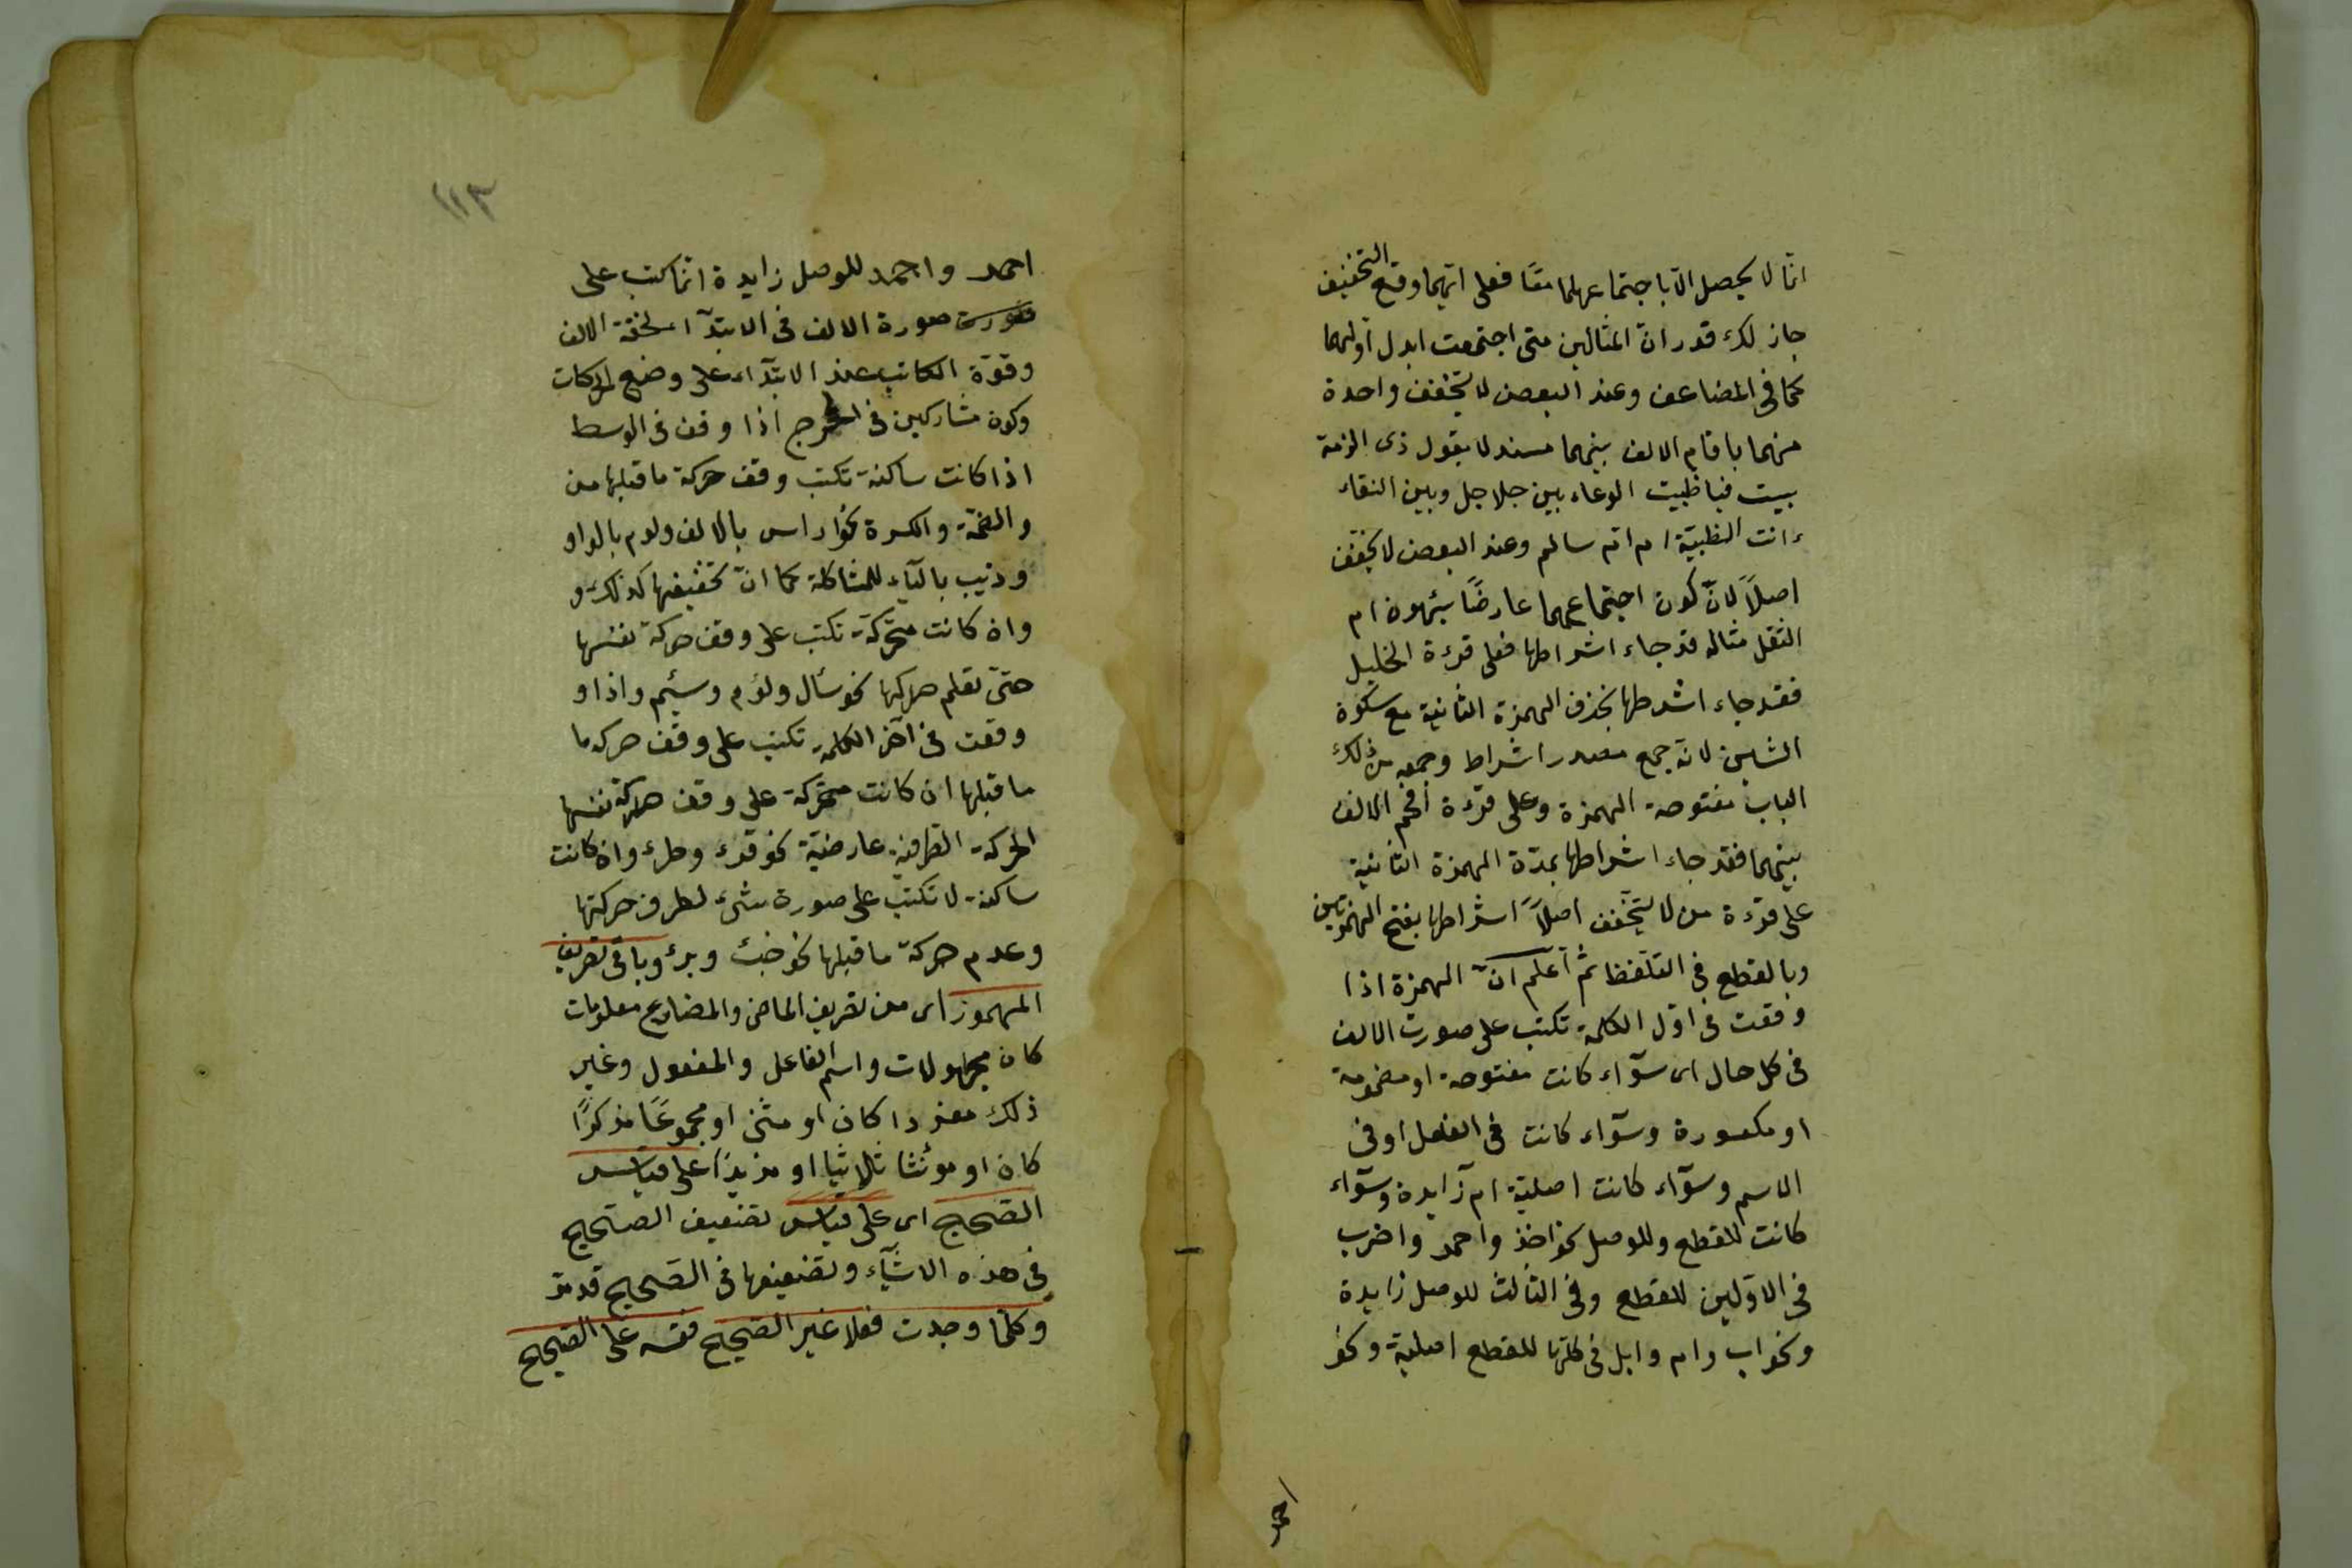 انّما لا يحصل الّا باجتماعهما معًا فعلى ايّهما وقع التخفيف
جاز لك قدر انّ المثالين متى اجتمعت ابدل اوليهما
كما فى المضاعف وعند البعض لا يخفّف واحدة
منهما باقام الالف بينهما مسند لا بقول ذى الرمة
بيت فيا ظبيت الوعاء بين جلاجل وبين النقاء
ءانت الظبيّة ام ام سالم وعند البعض لا يخفّف
اصلاً لانّ كون اجتماعهما عارضًا يهون ام
الثقل مثاله قد جاء اشراطها فعلى قرءة الخليل
فقد جاء اشرطها بحذف الهمزة الثانية مع سكون
الشين لانّه جمع مصدر اشراط وجمعه من ذلك
الباب مفتوحة الهمزة وعلى قرءة اقحم الالف
بينهما فقد جاء اشراطها بمدّة الهمزة الثانية
على قرءة من لا يخفّف اصلاً اشراطها بفتح الهمزتين
وبالقطع فى التلفّظ ثمّ اعلم انّ الهمزة اذا
وقعت فى اوّل الكلمة تكتب على صورت الالف
فى كل حال اى سوآء كانت مفتوحة او مضمومة
او مكسورة وسوآء كانت فى الفعل او فى
الاسم وسوآء كانت اصليّة ام زايدة وسوآء
كانت للقطع وللوصل نحو اخذ واحمد واضرب
فى الاوّلين للقطع وفى الثالث للوصل زايدة
ونحو اب وام وابل فى كلها للقطع اصلية ونحو
احمد
١١٣
احمد واحمد للوصل زايدة انّما كتب على
صورة الالف فى الابتدآء لخفّة الالف
وقوّة الكاتب عند الابتدآء على وضع الحركات
وكون مشاركين فى المخرج اذا وقف فى الوسط
اذا كانت ساكنة تكتب وقف حركة ما قبلها من
والضمّة والكسرة نحو راس بالالف ولوم بالواو
وذيب باليآء للمشاكلة كما انّ تخفيفها كذلك و
وان كانت متحرّكة تكتب على وقف حركة نفسها
حتى تعلم حركتها نحو سأل ولؤم وسئم واذا و
وقعت فى آخر الكلمة تكتب على وقف حركه ما
ما قبلها ان كانت متحرّكة على وقف حركة نفسها
الحركة الطرفية عارضيّة نحو قرء وطرء وان كانت
ساكنة لا تكتب على صورة شىء لطرف حركتها
وعدم حركة ما قبلها نحو خبث وبرء وباقى تصريف
المهموز اى من تصريف الماضى والمضارع معلومات
كان مجهولات واسم الفاعل والمفعول وغير
ذلك مفردا كان او مثنى او مجموعًا مذكرًا
كان او مؤنثا ثلاثيا او مزيدًا على قياس
الصحيح اى على قياس تضعيف الصحيح
فى هذه الاشيآء وتضعيفها فى الصحيح قد مر
وكلّما وجدت فعلا غير الصحيح فقسه على الصحيح